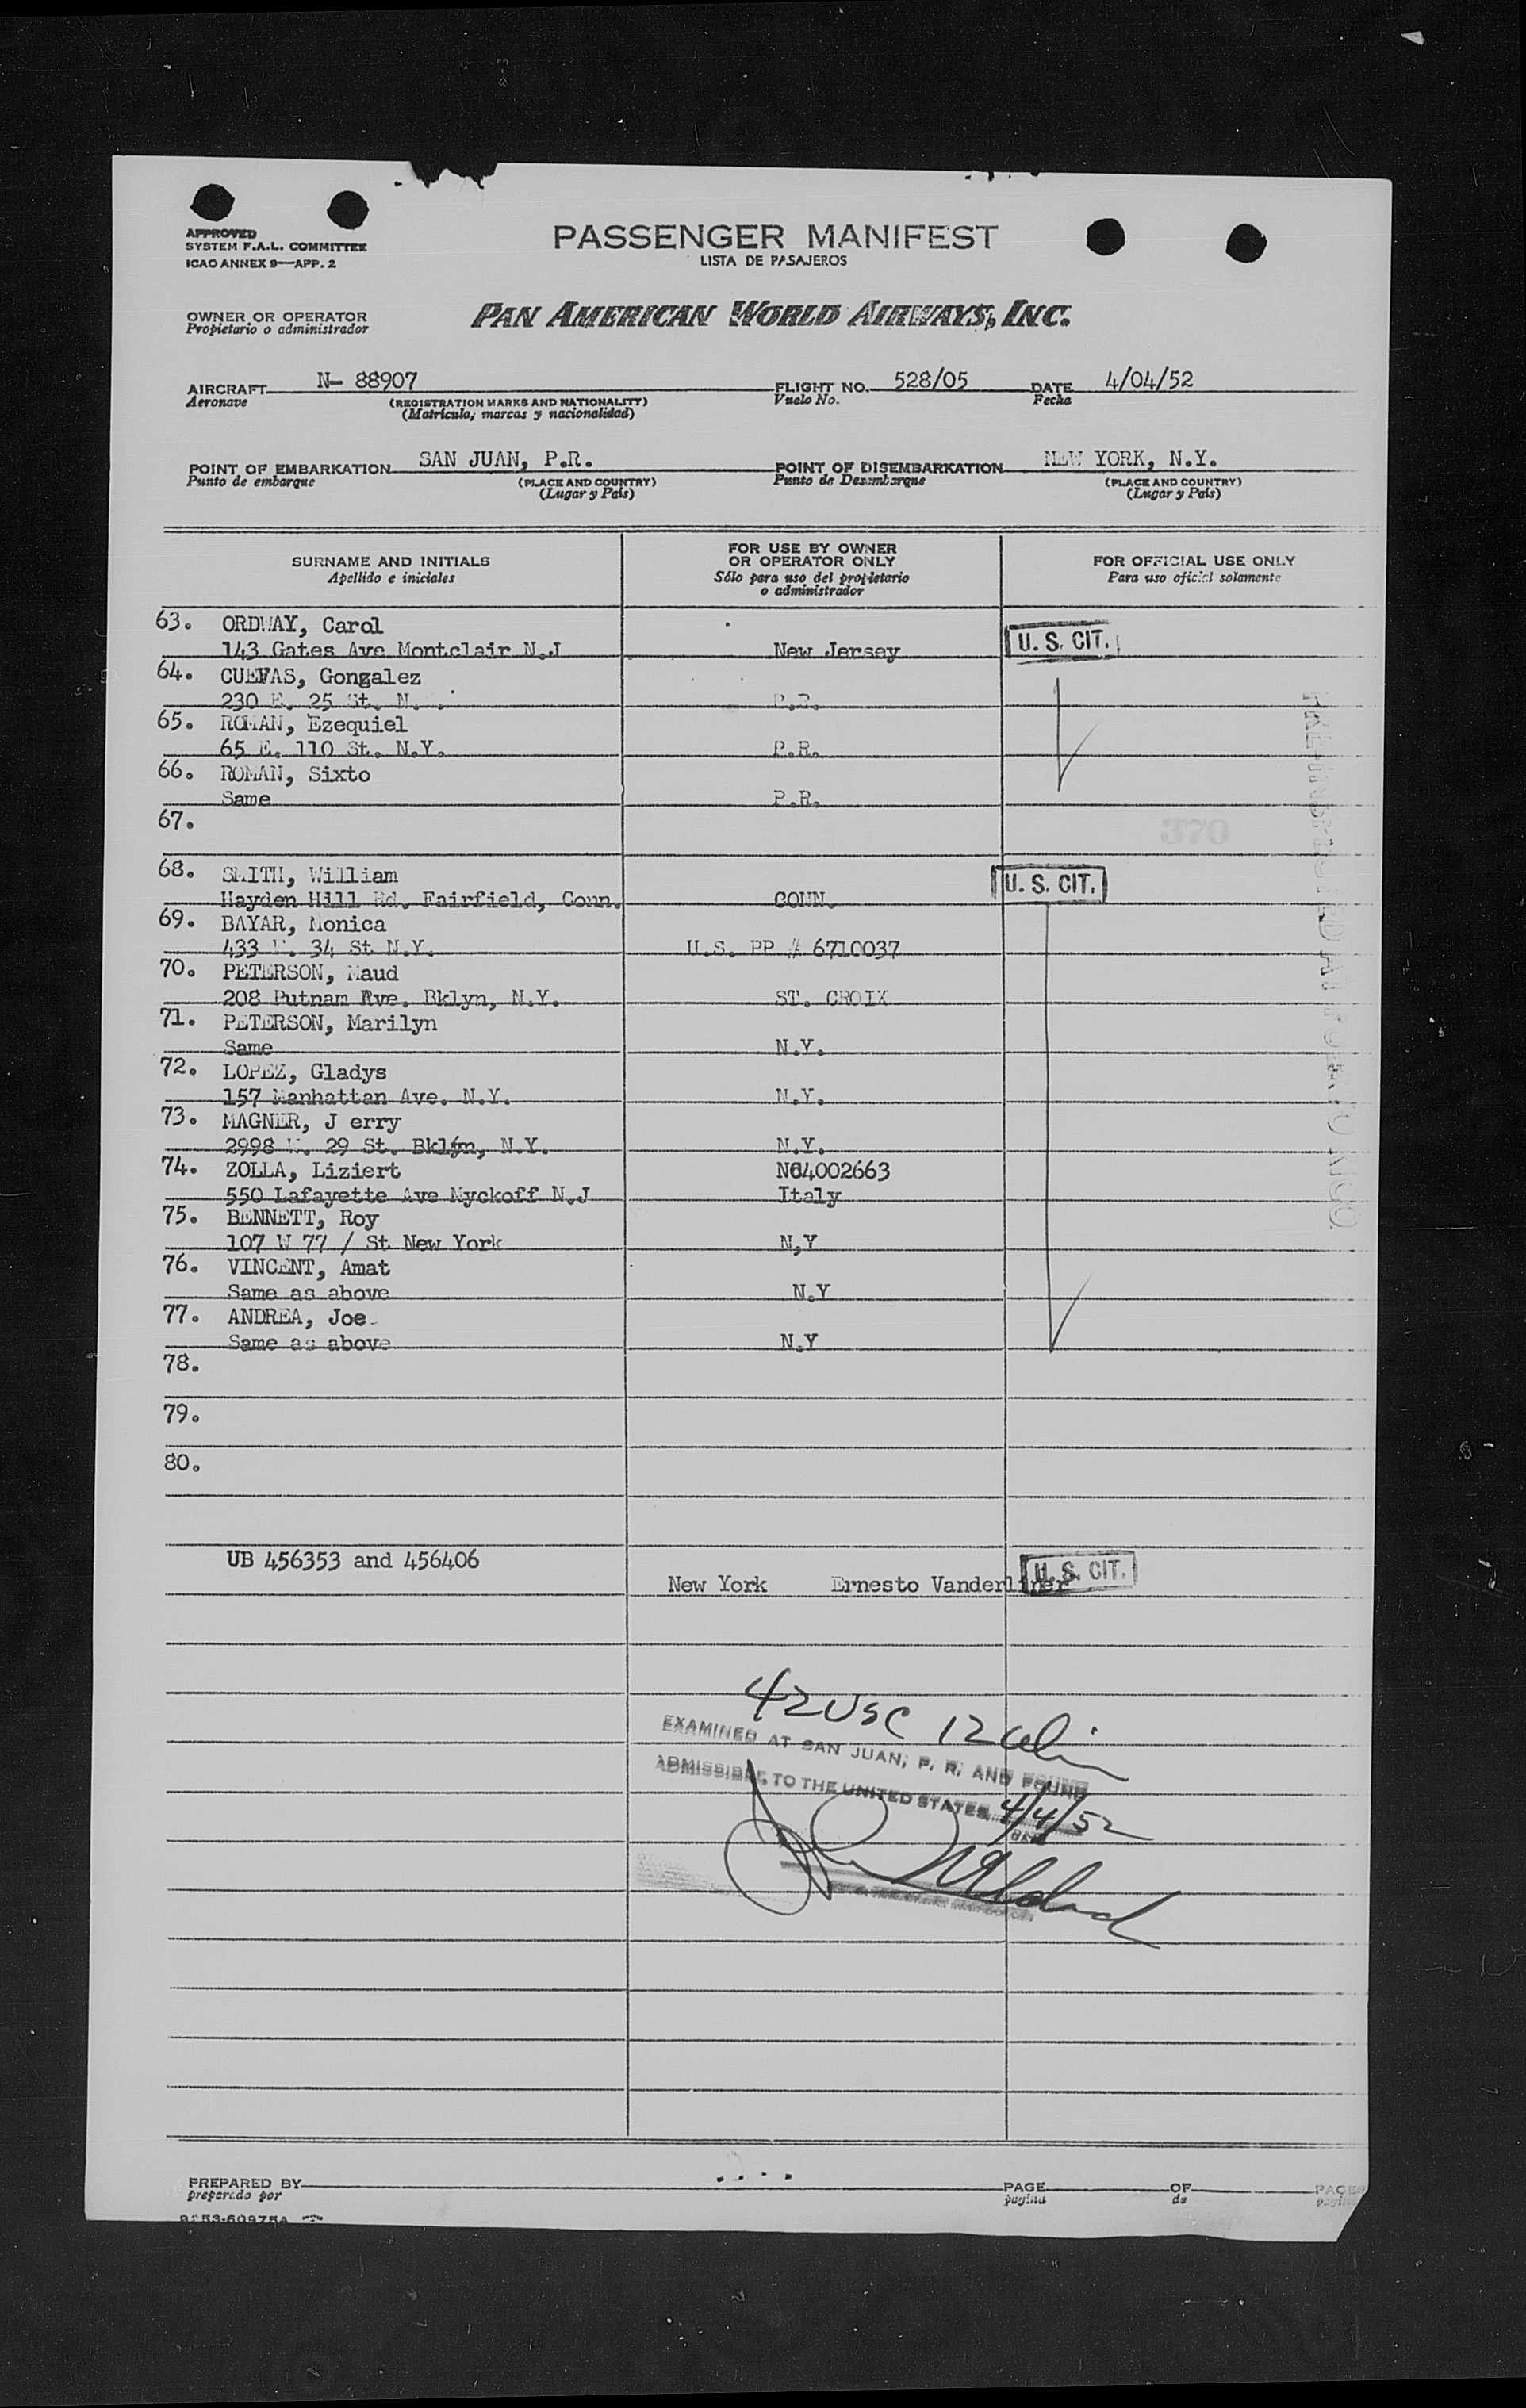 APPROVED
SYSTEM F.A.L. COMMITTEE
ICAO ANNEX 9—APP. 2
PASSENGER MANIFEST
LISTA DE PASAJEROS
OWNER OR OPERATOR
Propietario o administrador
PAN AMERICAN WORLD AIRWAYS, INC.
AIRCRAFT N- 88907
Aeronave
(REGISTRATION MARKS AND NATIONALITY)
(Matrícula, marcas y nacionalidad)
FLIGHT NO. 528/05
Vuelo No.
DATE 4/04/52
Fecha
POINT OF EMBARKATION SAN JUAN, P.R.
Punto de embarque
(PLACE AND COUNTRY)
(Lugar y País)
POINT OF DISEMBARKATION NEW YORK, N.Y.
Punto de Desembarque
(PLACE AND COUNTRY)
(Lugar y País)
SURNAME AND INITIALS
Apellido e iniciales
FOR USE BY OWNER
OR OPERATOR ONLY
Sólo para uso del propietario
o administrador
FOR OFFICIAL USE ONLY
Para uso oficial solamente
63. ORDWAY, Carol
143 Gates Ave Montclair N.J New Jersey U. S. CIT.
64. CUEVAS, Gongalez
230 E. 25 St. N. . P.R.
65. ROMAN, Ezequiel
65 E. 110 St. N.Y. P.R.
66. ROMAN, Sixto
Same P.R.
67.
370
68. SMITH, William
Hayden Hill Rd. Fairfield, Conn. CONN. U. S. CIT.
69. BAYAR, Monica
433 W. 34 St N.Y. U.S. PP # 6710037
70. PETERSON, Maud
208 Putnam Ave. Bklyn, N.Y. ST. CROIX
71. PETERSON, Marilyn
Same N.Y.
72. LOPEZ, Gladys
157 Manhattan Ave. N.Y. N.Y.
73. MAGNER, J erry
2998 W. 29 St. Bklyn, N.Y. N.Y.
74. ZOLLA, Liziert N64002663
550 Lafayette Ave Myckoff N.J Italy
75. BENNETT, Roy
107 W 77 / St New York N,Y
76. VINCENT, Amat
Same as above N.Y
77. ANDREA, Joe
Same as above N.Y
78.
79.
80.
UB 456353 and 456406
New York Ernesto Vanderliner U. S. CIT.
42 USC 12
EXAMINED AT SAN JUAN, P. R. AND FOUND
ADMISSIBLE TO THE UNITED STATES 4/4/52
PREPARED BY
preparado por
PAGE OF PAGES
pagina de